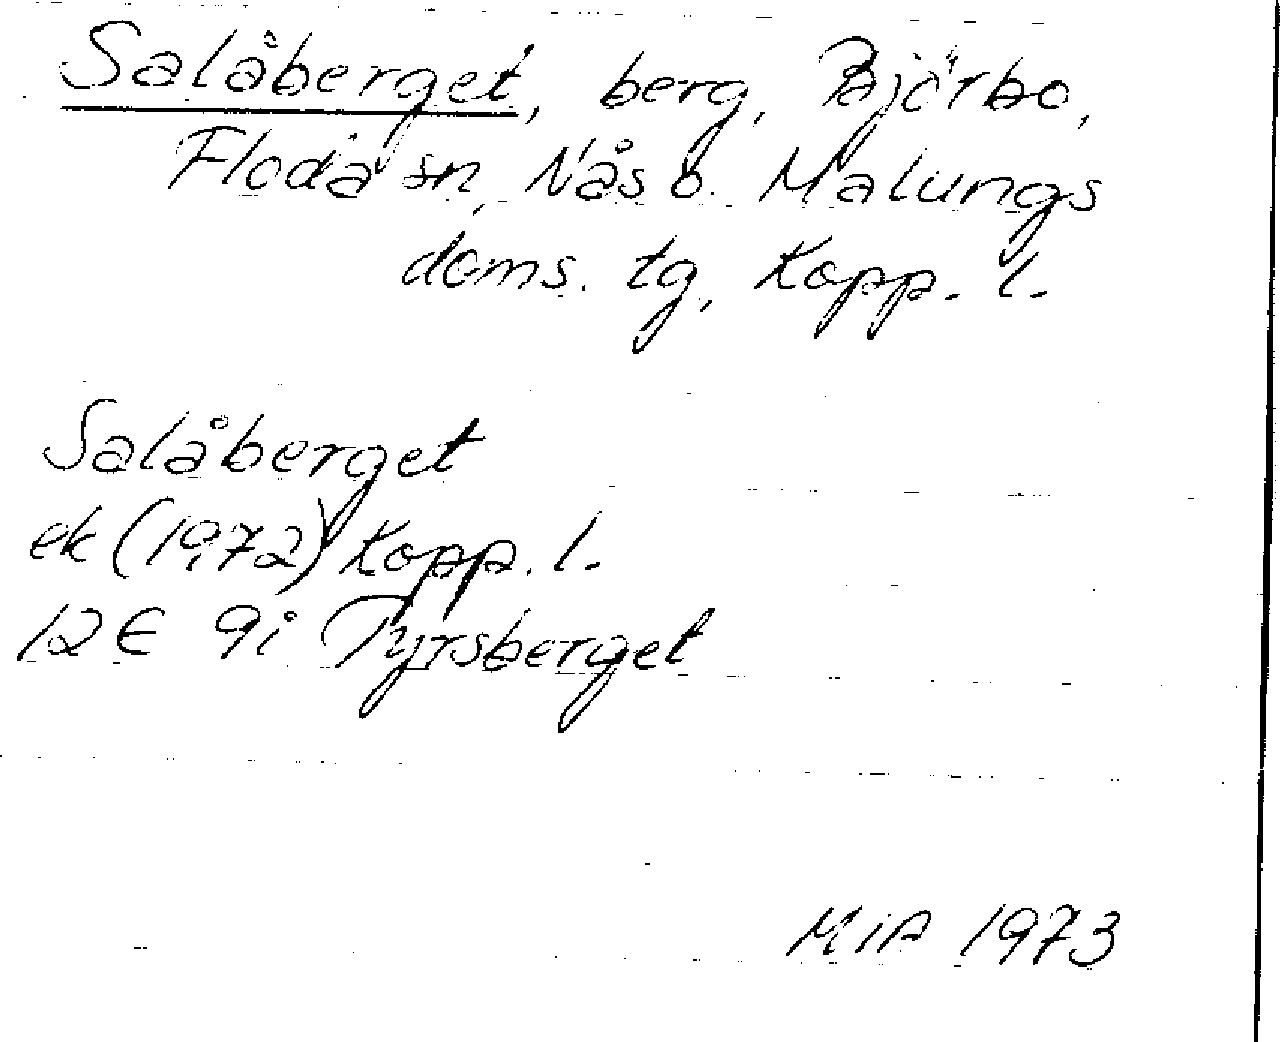 Salåberget, berg, Björbo,
Floda sn, Nås o. Malungs
doms. tg, Kopp. l.
Salåberget
ek (1972) Kopp. l.
12E 9i Tyrsberget
MiA 1973